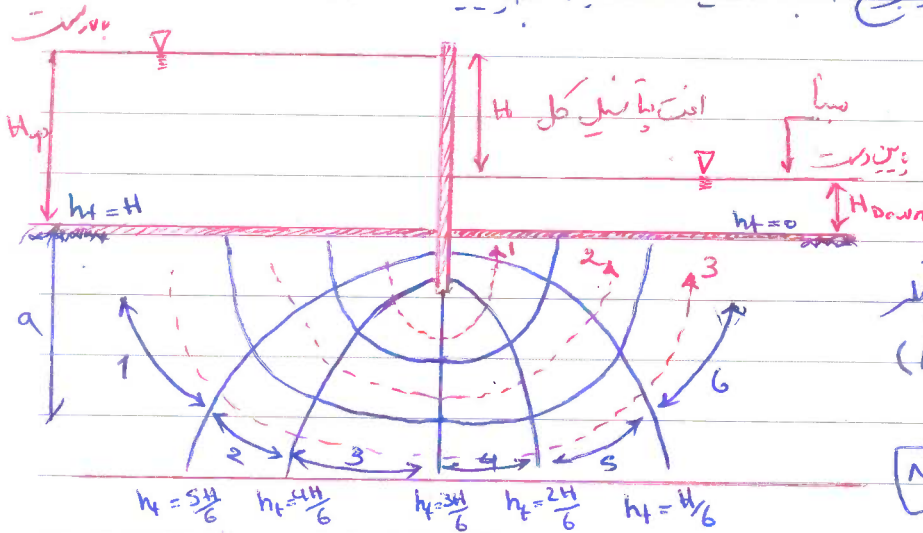 بالادست
H_up
H
افت پتانسیل کل
مبنا
پایین دست
H_Down
h_t = H
h_t = 0
a
1
2
3
1
2
3
4
5
6
h_t = 5H/6
h_t = 4H/6
h_t = 3H/6
h_t = 2H/6
h_t = H/6